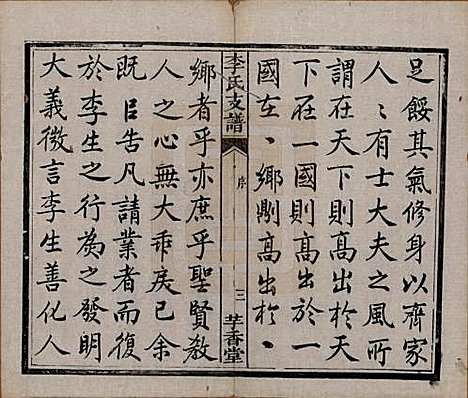 足餒其氣修身以齊家
人〻有士大夫之風所
謂在天下則高出於天
下在一國則高出於一
國在、鄉則高出於、
李氏支譜
序
三
芋香堂
鄉者乎亦庶乎聖賢教
人之心無大乖戾已余
既㠯告凡請業者而復
於李生之行爲之發明
大義微言李生善化人